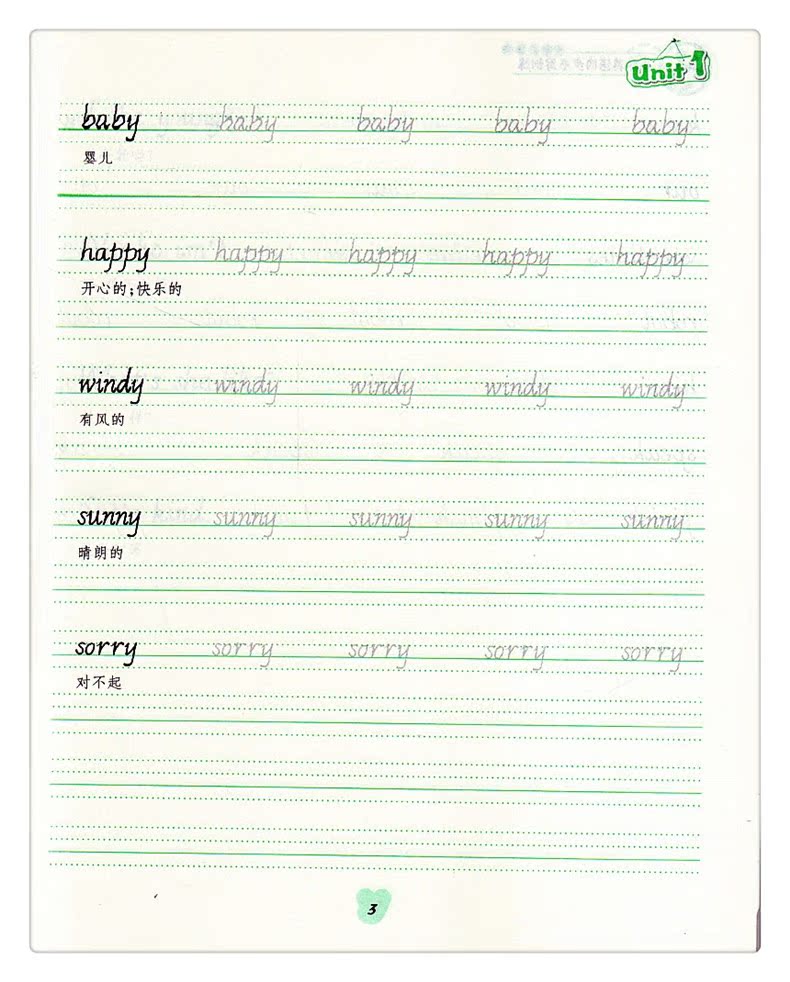 Unit 1
baby baby baby baby baby
婴儿
happy happy happy happy happy
开心的;快乐的
windy windy windy windy windy
有风的
sunny sunny sunny sunny sunny
晴朗的
sorry sorry sorry sorry sorry
对不起
3